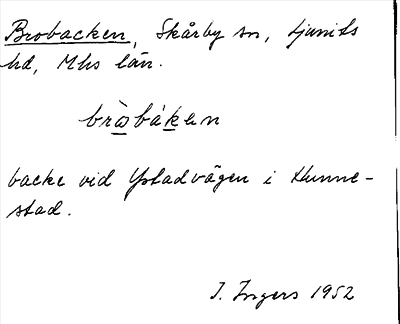 Brobacken, Skårby sn, Ljunits
hd, Mhs län.
bròbák en
backe vid Ystadvägen i Hunne-
stad.
I. Ingers 1952